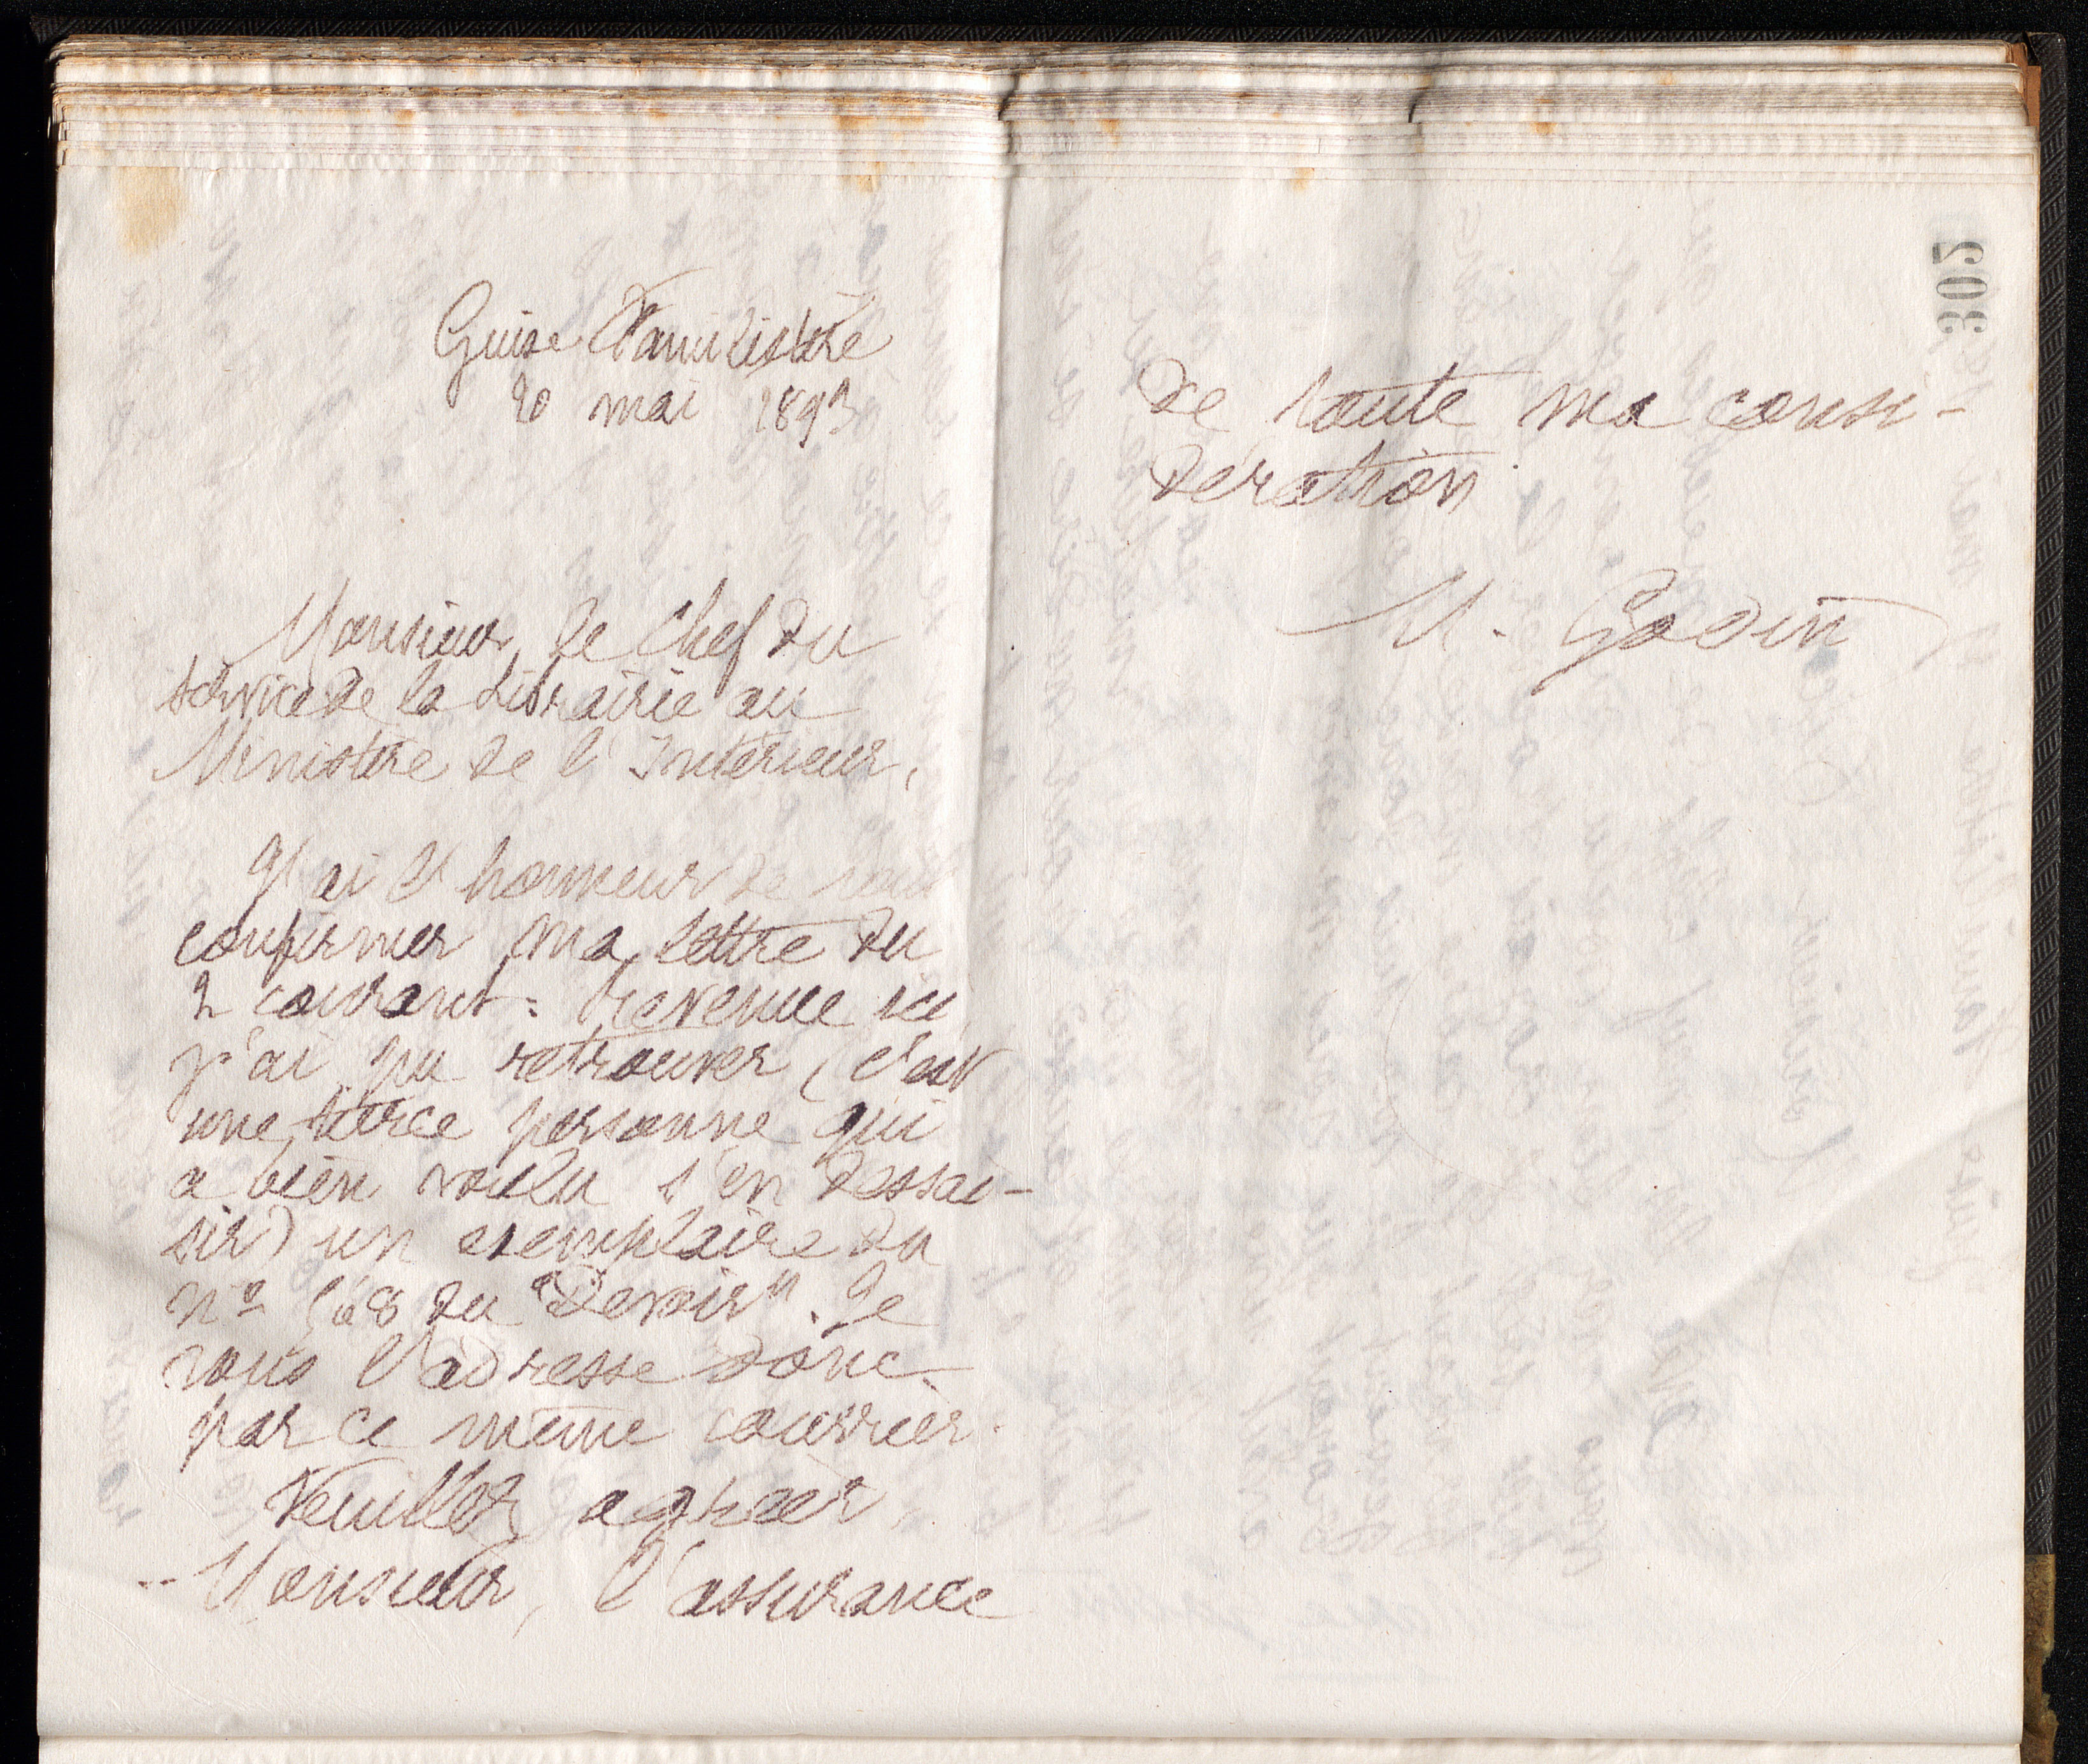 Guise Familistère
20 mai 1893
Monsieur le Chef du
service de la Librairie au
Ministère de l'Intérieur,
J'ai l'honneur de vous
confirmer ma lettre du
2 courant. Revenue ici
j'ai pu retrouver, (c'est
une tierce personne qui
a bien voulu s'en dessai-
sir) un exemplaire du
nº du "Devoir". Je
vous l'adresse donc
par ce même courrier.
Veuillez agréer,
Monsieur, l'assurance
de toute ma consi-
dération
M. Godin
302